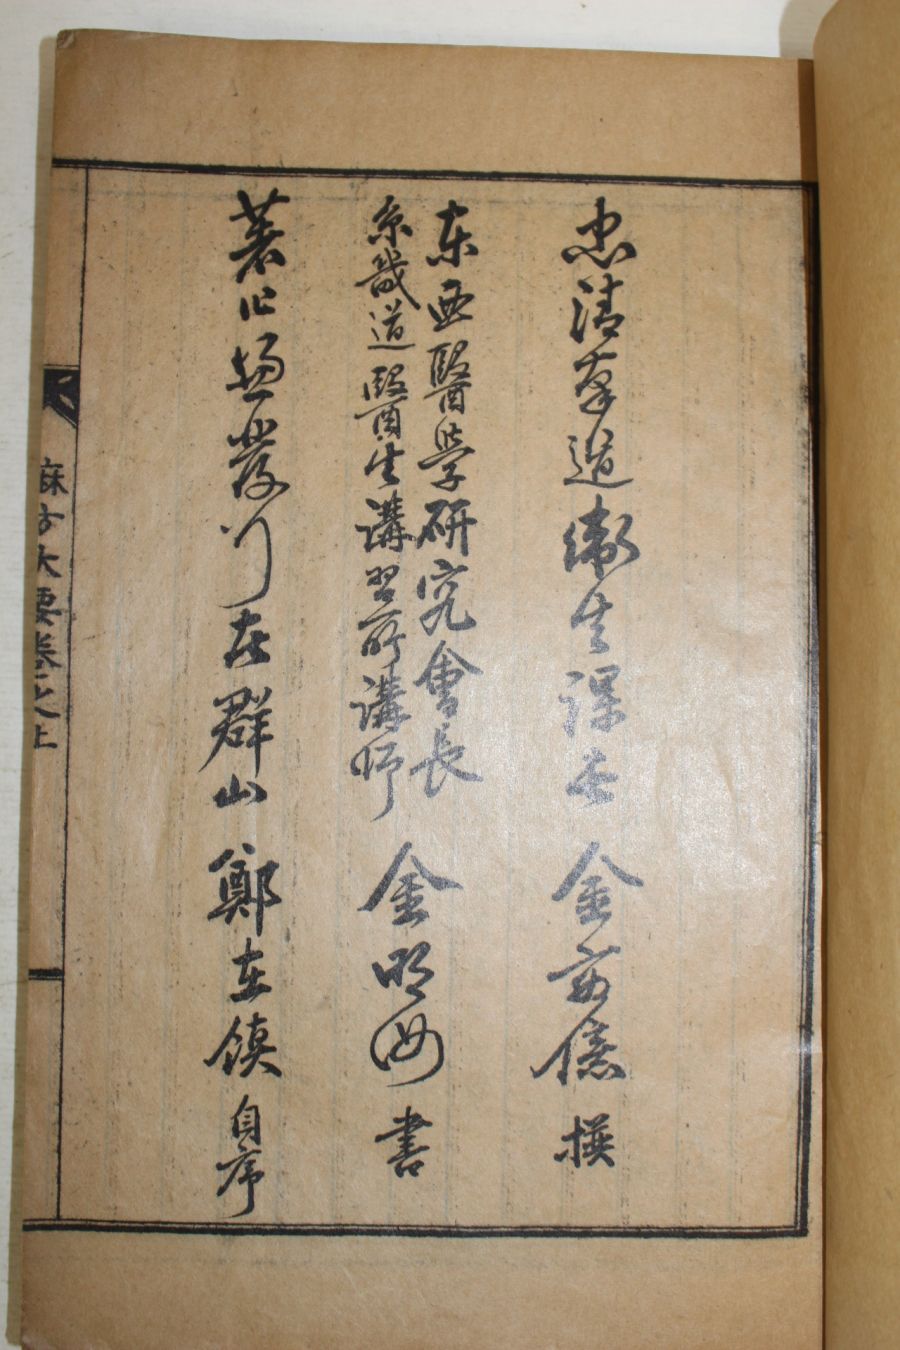 忠清南道衛生課長 金億 撰
東亞醫學硏究會長
京畿道醫生講習所講師 金明汝 書
著 在群山 鄭在鎮 自序
麻方大要卷之上